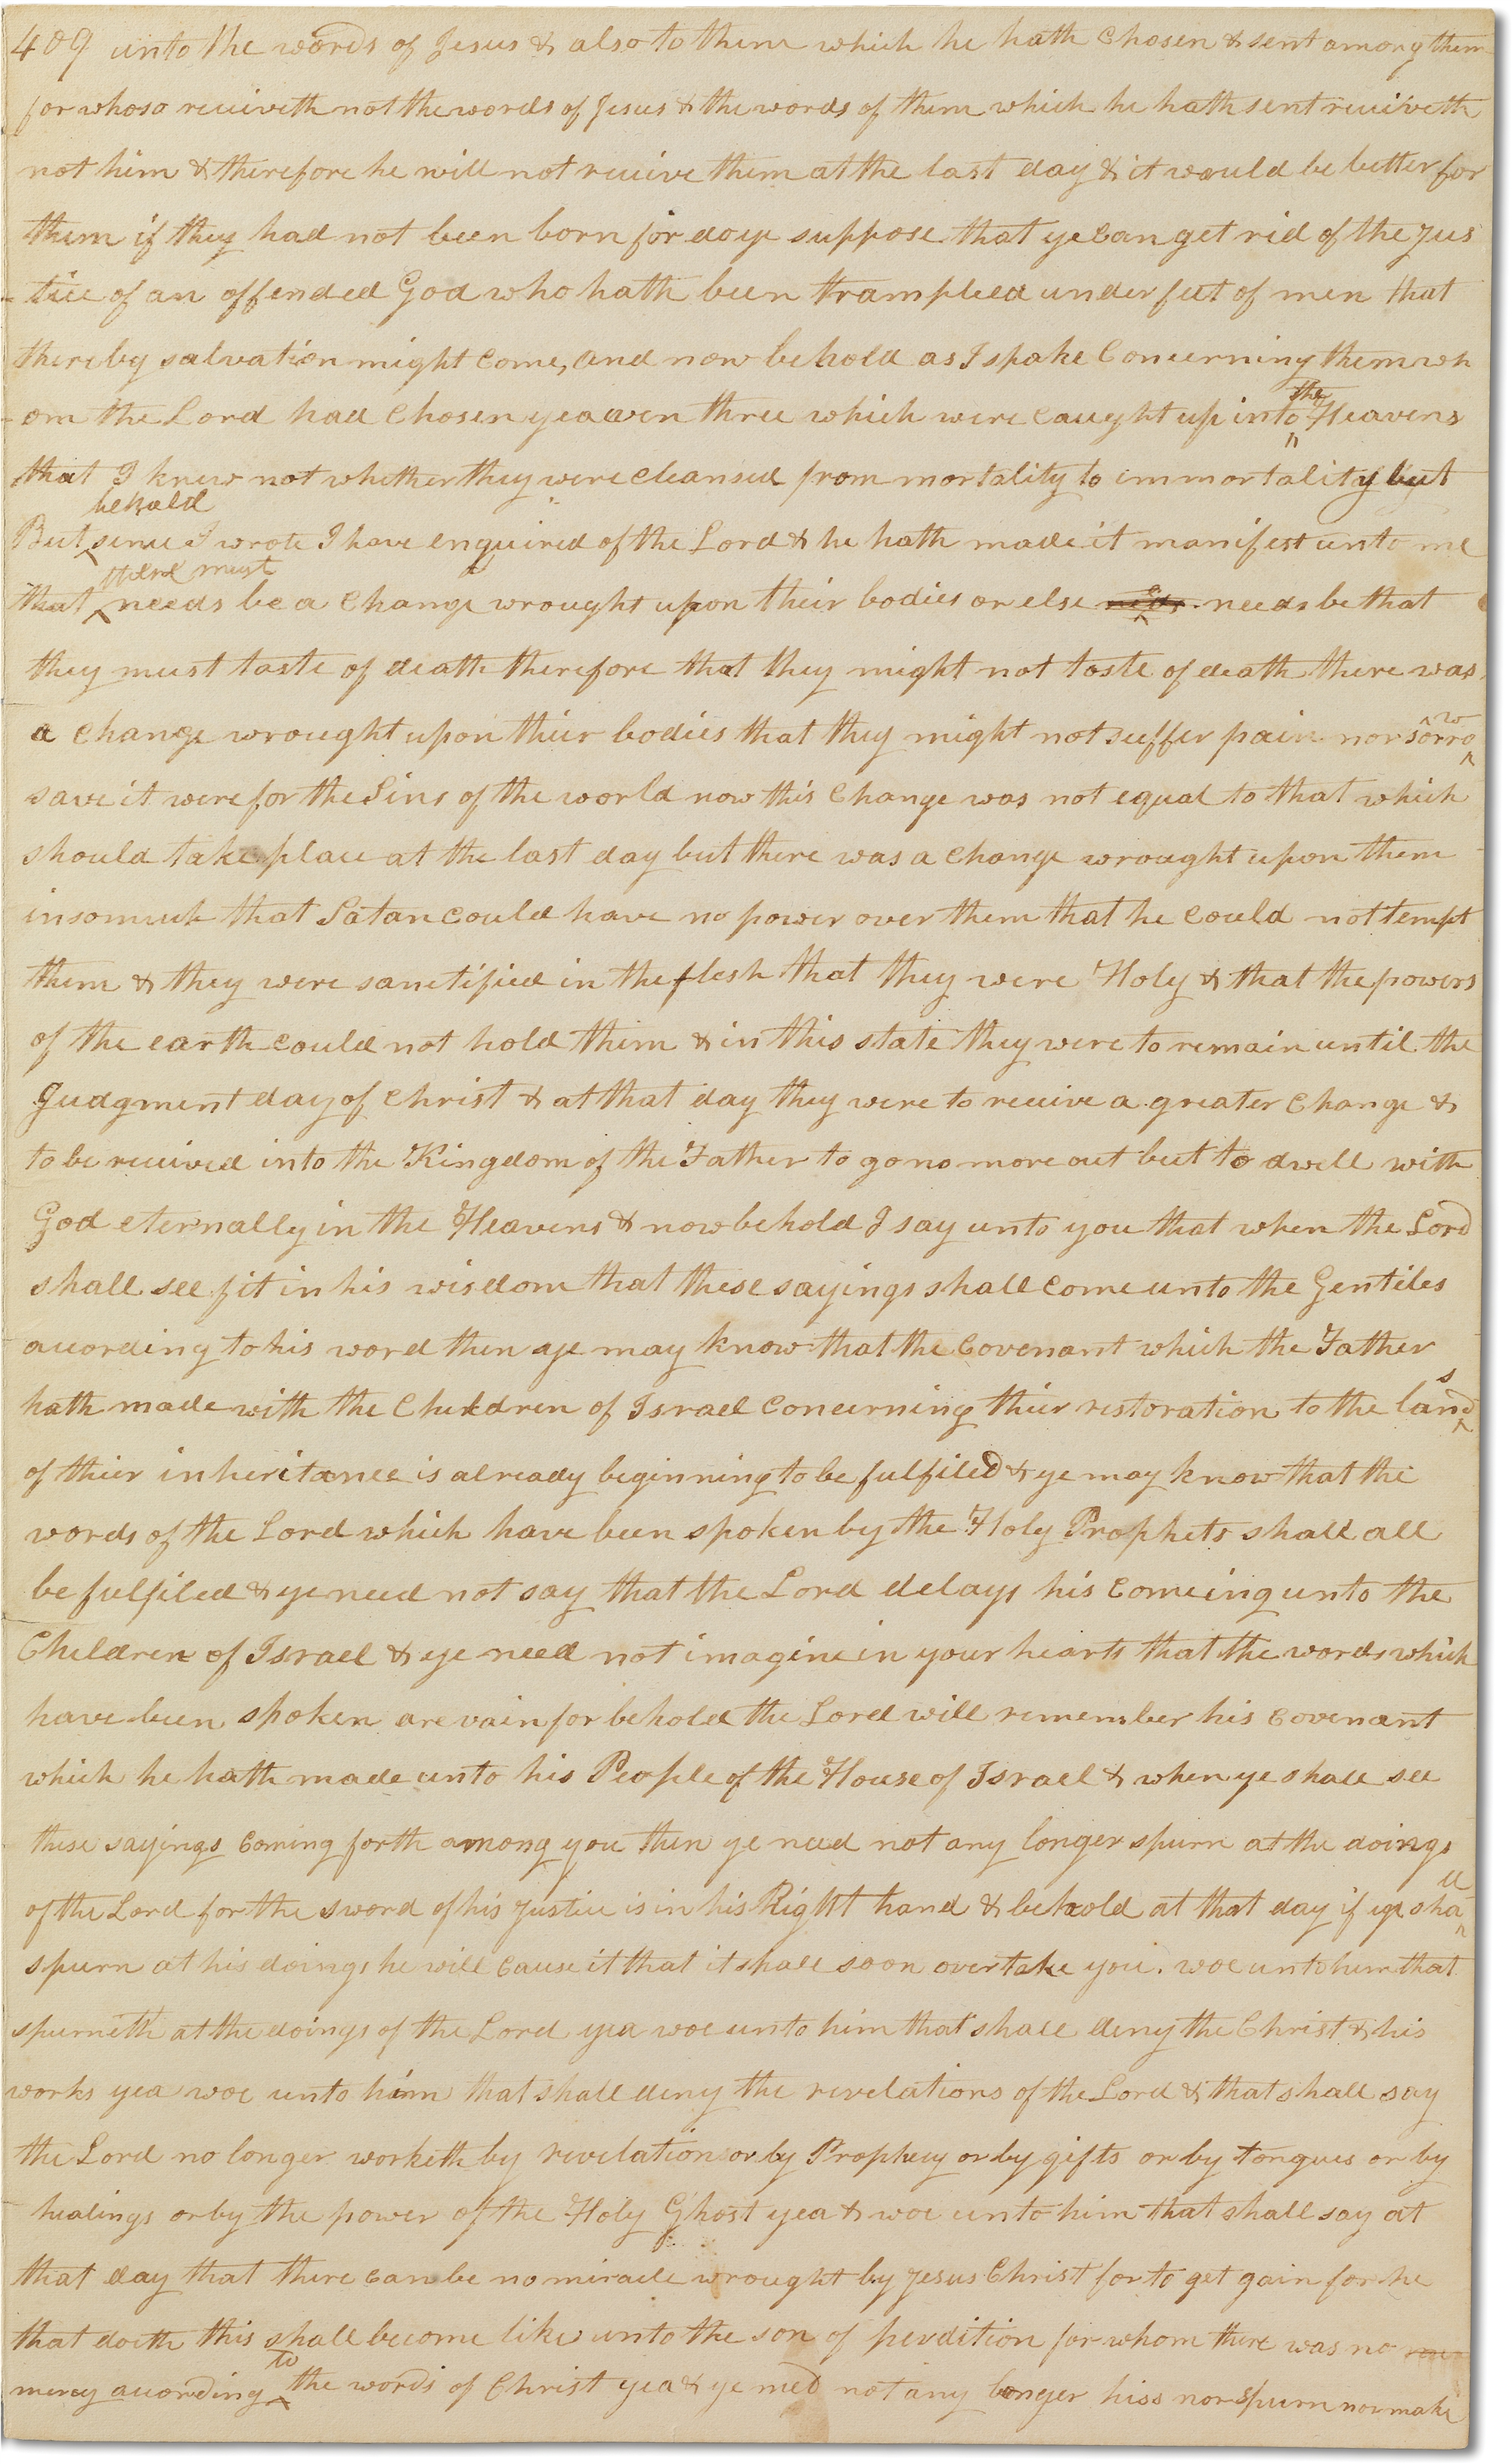 409 unto the words of Jesus & also to them which he hath chosen & sent among them
for whoso receiveth not the words of Jesus & the words of them which he hath sent receiveth
not him & therefore he will not receive them at the last day & it would be better for
them if they had not been born for do ye suppose that ye can get rid of the Jus
-tice of an offended God who hath been trampled under feet of men that
thereby salvation might come, and now behold as I spake concerning them wh
-om the Lord had chosen yea even three which were caught up into the Heavens
that I knew not whether they were cleansed from mortality to immortality but
But behold since I wrote I have enquired of the Lord & he hath made it manifest unto me
that there must needs be a change wrought upon their bodies or else needs be that
they must taste of death therefore that they might not taste of death there was
a change wrought upon thier bodies that they might not suffer pain nor sorrow
save it were for the Sins of the world now this change was not equal to that which
should take place at the last day but there was a change wrought upon them
insomuch that Satan could have no power over them that he could not tempt
them & they were sanctified in the flesh that they were Holy & that the powers
of the earth could not hold them & in this state they were to remain until the
Judgment day of Christ & at that day they were to receive a greater change &
to be received into the Kingdom of the Father to go no more out but to dwell with
God eternally in the Heavens & now behold I say unto you that when the Lord
shall see fit in his wisdom that these sayings shall come unto the Gentiles
according to his word then ye may know that the covenant which the Father
hath made with the Children of Israel concerning thier restoration to the lands
of thier inheritance is already beginning to be fulfiled & ye may know that the
words of the Lord which have been spoken by the Holy Prophets shall all
be fulfiled & ye need not say that the Lord delays his comeing unto the
Children of Israel & ye need not imagine in your hearts that the words which
have been spoken are vain for behold the Lord will remember his covenant
which he hath made unto his People of the House of Israel & when ye shall see
these sayings coming forth among you then ye need not any longer spurn at the doings
of the Lord for the sword of his Justice is in his Right hand & behold at that day if ye shall
spurn at his doings he will cause it that it shall soon overtake you. woe unto him that
spurneth at the doings of the Lord yea woe unto him that shall deny the Christ & his
works yea woe unto him that shall deny the revelations of the Lord & that shall say
the Lord no longer worketh by revelation or by Prophecy or by gifts or by tongues or by
healings or by the power of the Holy Ghost yea & woe unto him that shall say at
that day that there can be no miracle wrought by Jesus Christ for to get gain for he
that doeth this shall become like unto the son of perdition for whom there was no
mercy according to the words of Christ yea & ye need not any longer hiss nor spurn nor make